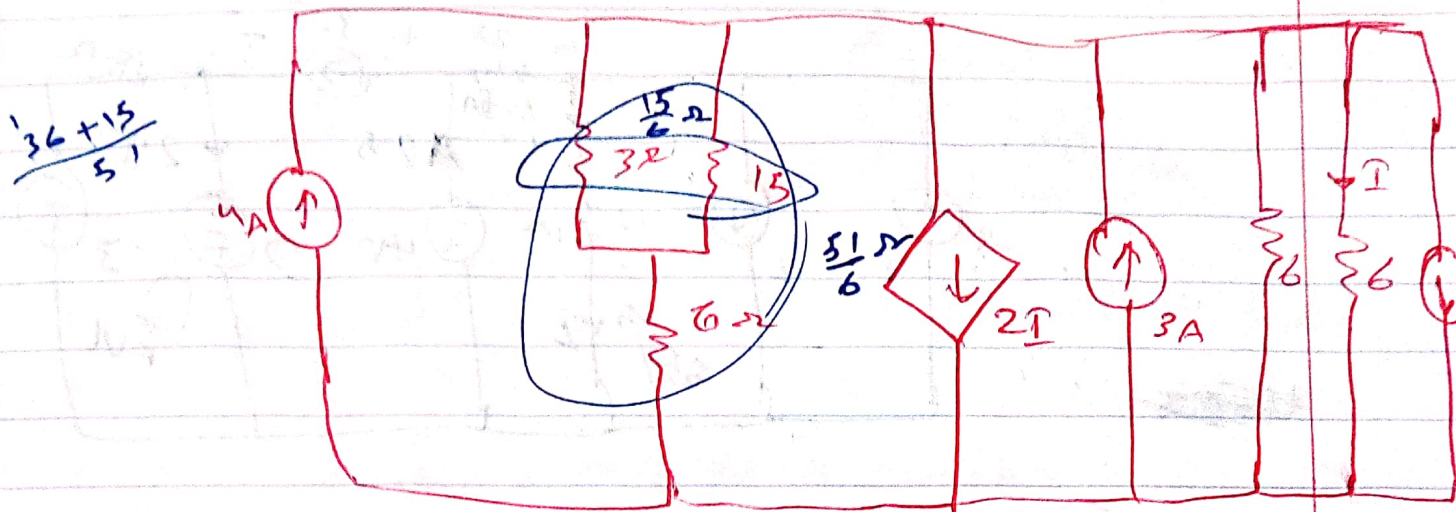 36 + 15
5
4A
15
6 Ω
3Ω
15
6 Ω
51 Ω
6
2I
3A
6
I
6